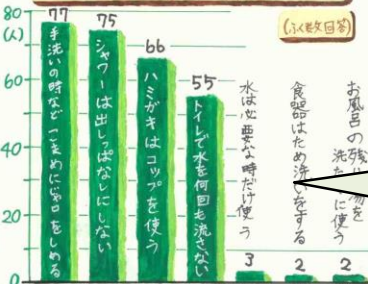 80
(人)
60
40
20
0
(ふく数回答)
77
手洗いの時など こまめにじゃ口をしめる
75
シャワーは出しっぱなしにしない
66
ハミガキはコップを使う
55
トイレで水を何回も流さない
水は必要な時だけ使う
3
食器はため洗いをする
2
お風呂の残り湯を
洗たくに使う
2